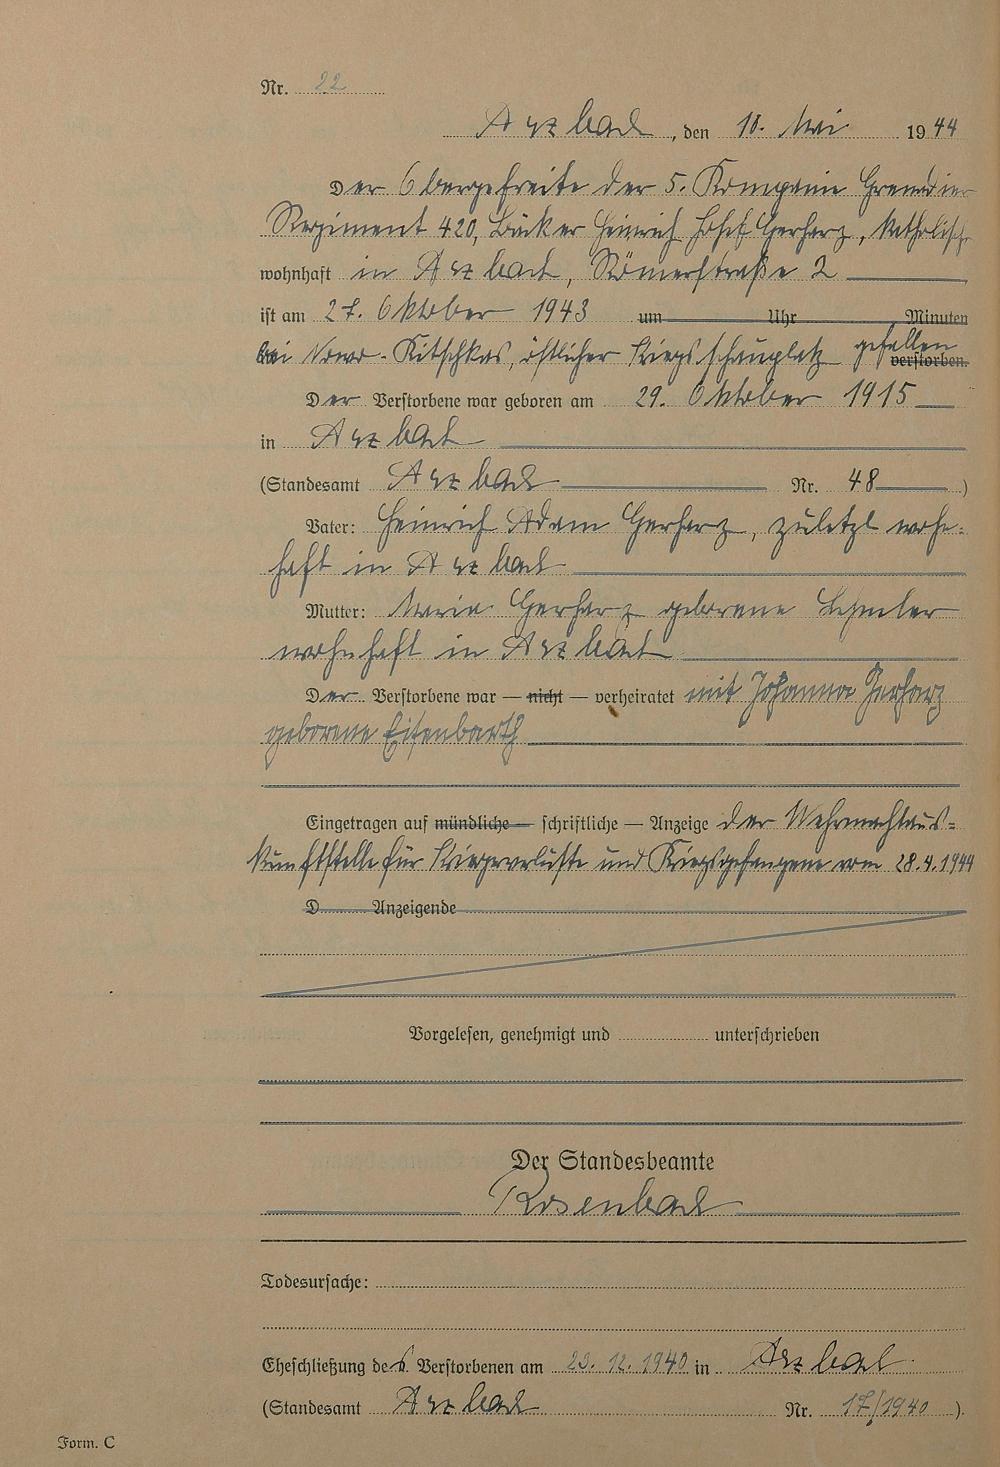 Nr. 22
Arzbach, den 10. Mai 1944
Der Obergefreite der 5. Kompanie Grenadier
Regiment 420, Bäcker Heinrich Josef Gerharz, katholisch
wohnhaft in Arzbach, Römerstraße 2
ist am 27. Oktober 1943 um Uhr Minuten
bei Nowo-Kitschkas, östlicher Kriegsschauplatz gefallen verstorben.
Der Verstorbene war geboren am 29. Oktober 1915
in Arzbach
(Standesamt Arzbach Nr. 48)
Vater: Heinrich Adam Gerharz, zuletzt wohn-
haft in Arzbach
Mutter: Maria Gerharz geborene
wohnhaft in Arzbach
Der Verstorbene war — nicht — verheiratet mit Johanna Gerharz
geborene Eisenbarth
Eingetragen auf mündliche — schriftliche — Anzeige der Wehrmachtaus-
kunftstelle für Kriegerverluste und Kriegsgefangene vom 28.4.1944
D Anzeigende
Vorgelesen, genehmigt und unterschrieben
Der Standesbeamte
Rosenbach
Todesursache:
Eheschließung des Verstorbenen am 23.12.1940 in Arzbach
(Standesamt Arzbach Nr. 17/1940).
Form. C